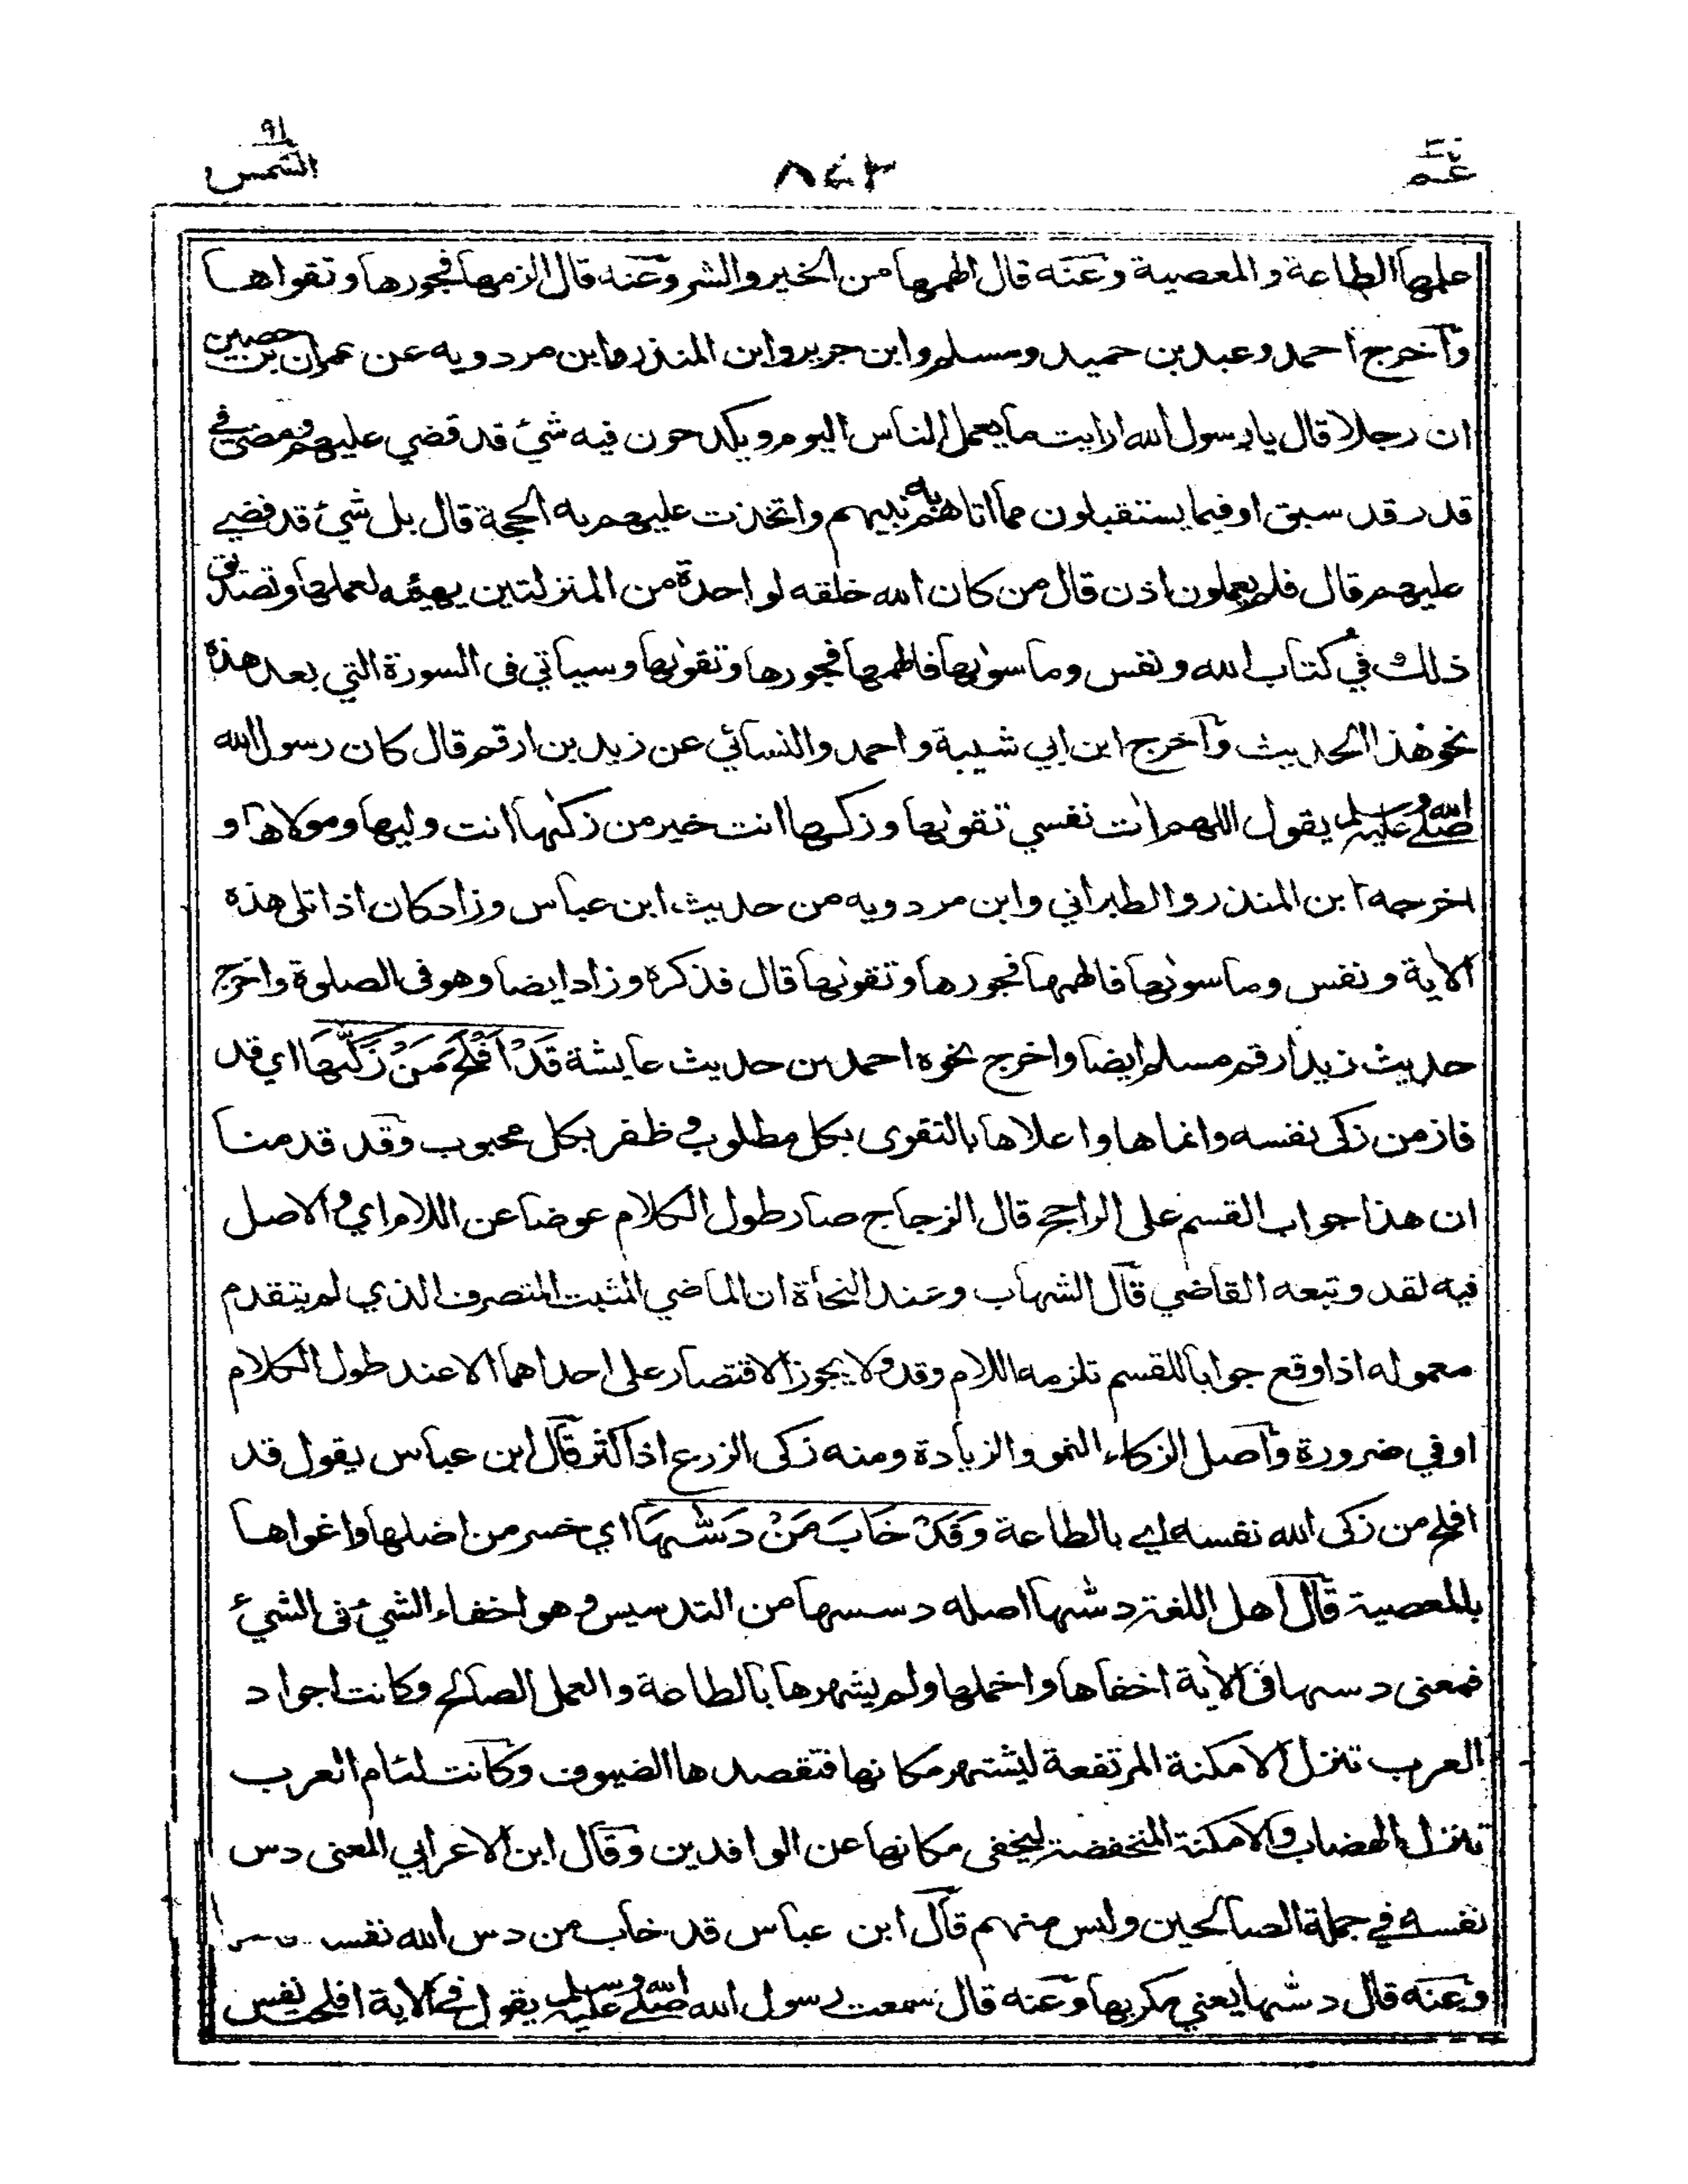 عم ٣٠
٨٤٣
٩١ الشمس
علمها الطاعة والمعصية وعنه قال الهمها من الخير والشر وعنه قال الزمها فجورها وتقواها
وآخرج احمد وعبد بن حميد ومسلم وابن جرير وابن المنذر وابن مردويه عن عمران بن حصين
ان رجلا قال يا رسول الله ارايت ما يعمل الناس اليوم ويكدحون فيه شئ قد قضي عليهم ومضى في
قدر قد سبق او فيما يستقبلون مما اتاهم به نبيهم واتخذت عليهم به الحجة قال بل شئ قد قضي
عليهم قال فلم يعملون اذن قال من كان الله خلقه لواحدة من المنزلتين يهيئه لعملها وتصديق
ذلك في كتاب الله ونفس وما سوٰىها فالهمها فجورها وتقوٰىها وسياتي فى السورة التي بعد هذه
نحو هذا الحديث وآخرج ابن ابي شيبة واحمد والنسائي عن زيد بن ارقم قال كان رسول الله
صلى الله عليه وسلم يقول اللهم اٰت نفسي تقوٰىها وزكها انت خير من زكٰىها انت وليها ومولاها و
اخرجه ابن المنذر والطبراني وابن مردويه من حديث ابن عباس وزاد كان اذا تلى هذه
الاية ونفس وما سوٰىها فالهمها فجورها وتقوٰىها قال فذكره وزاد ايضا وهو فى الصلوة واخرج
حديث زيد ارقم مسلم ايضا واخرج نحوه احمد من حديث عايشة قَدْ اَفْلَحَ مَنْ زَكّٰىهَا اي قد
فاز من زكى نفسه وانماها واعلاها بالتقوى بكل مطلوب و ظفر بكل محبوب وقد قدمنا
ان هذا جواب القسم على الراجح قال الزجاج صار طول الكلام عوضا عن اللام اي والاصل
فيه لقد وتبعه القاضي قال الشهاب وعند النحاة ان الماضي المثبت المتصرف الذي لم يتقدم
معموله اذا وقع جوابا للقسم تلزمه اللام وقد ولا يجوز الاقتصار على احداهما الا عند طول الكلام
او في ضرورة وآصل الزكاء النمو والزيادة ومنه زكى الزرع اذا كثر قال ابن عباس يقول قد
افلح من زكى الله نفسه اي بالطاعة وَقَدْ خَابَ مَنْ دَسّٰىهَا اي خسر من اضلها واغواها
بالمعصية قال اهل اللغة دسّٰىها اصله دسسها من التدسيس وهو اخفاء الشيء فى الشيء
فمعنى دسها فى الاية اخفاها واخملها ولم يشهرها بالطاعة والعمل الصالح وكانت اجواد
العرب تنزل الامكنة المرتفعة ليشتهر مكانها فتقصدها الضيوف وكانت لئام العرب
تنزل الهضاب والامكنة المنخفضة ليخفى مكانها عن الوافدين وقال ابن الاعرابي المعنى دس
نفسه في جملة الصالحين وليس منهم قال ابن عباس قد خاب من دس الله نفسه
وعنه قال دسّٰىها يعني مكر بها وعنه قال سمعت رسول الله صلى الله عليه وسلم يقول في الاية افلحت نفس